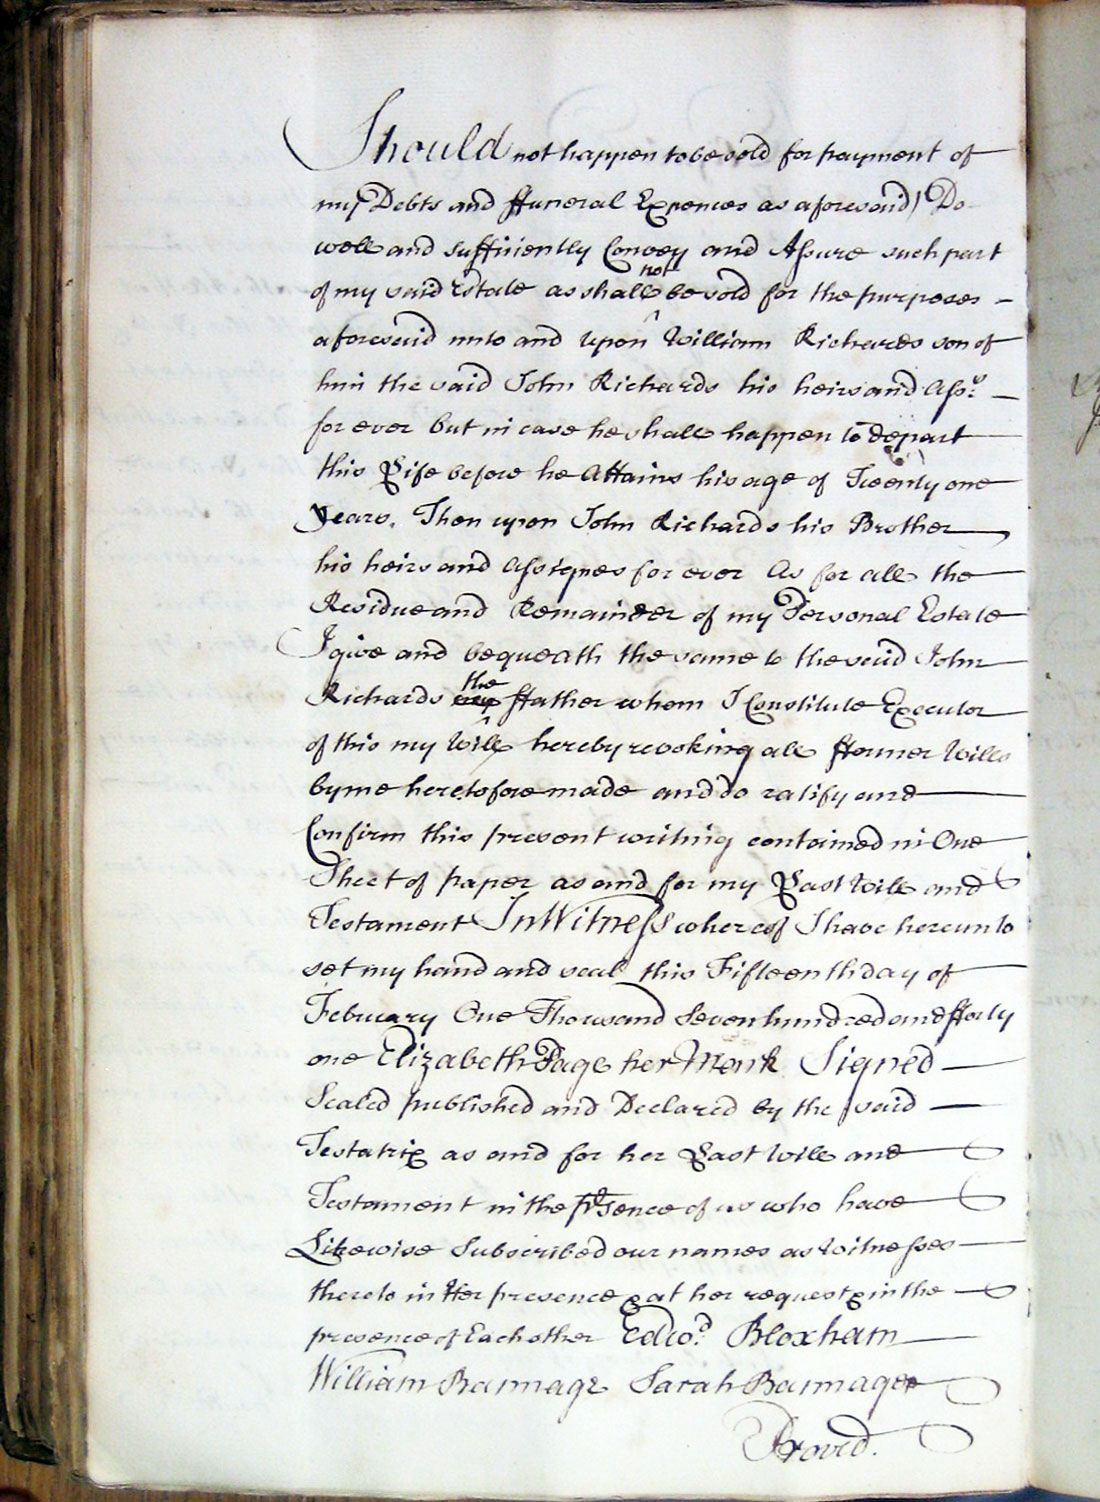 Should not happen to be sold for payment of
my Debts and ffuneral Expences as aforesaid) Do
well and sufficiently Convey and Assure such part
of my said Estate as shall not be sold for the purposes
aforesaid unto and upon William Richards son of
him the said John Richards his heirs and Ass:s
for ever but in case he shall happen to depart
this Life before he Attains his age of Twenty one
years. Then upon John Richards his Brother
his heirs and Assignes for ever As for all the
Residue and Remainder of my Personal Estate
I give and bequeath the same to the said John
Richards the ffather whom I Constitute Executor
of this my Will hereby revoking all fformer Wills
by me heretofore made and do ratify and
Confirm this present writing contained in One
Sheet of paper as and for my Last Will and
Testament In Witness whereof I have hereunto
set my hand and seal this Fifteenth day of
February One Thousand Seven hundred and fforty
one Elizabeth Page her Mark Signed
Sealed published and Declared by the said
Testatrix as and for her Last Will and
Testament in the p'sence of us who have
Likewise Subscribed our names as Witnesses
thereto in Her presence & at her request & in the
presence of Each other Edwd. Bloxham
William Bannage Sarah Bannage
Proved.